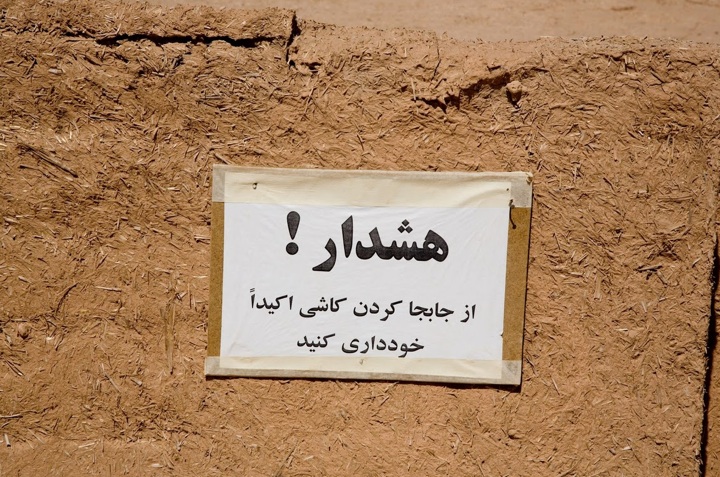 هشدار !
از جابجا کردن کاشی اکیداً
خودداری کنید